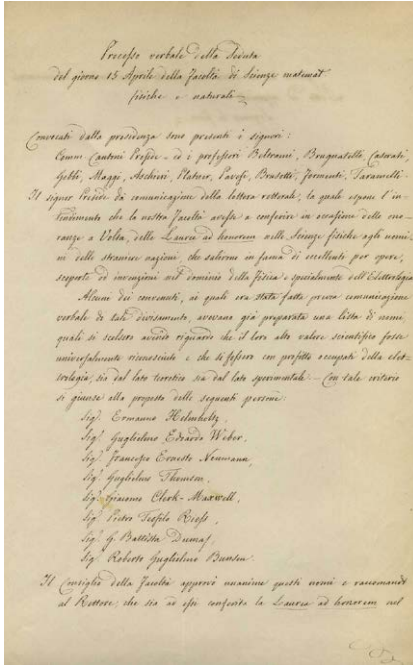 Processo verbale della Seduta
del giorno 15 Aprile della Facoltà di Scienze matemat
fisiche e naturali
Convocati dalla presidenza sono presenti i signori:
Comm Cantoni Preside – ed i professori Beltrami, Brugnatelli, Casorati,
Gobbi, Maggi, Aschieri, Platner, Pavesi, Brusotti, Formenti, Taramelli.
Il signor Preside dà comunicazione della lettera rettorale, la quale espone l'in-
tendimento che la nostra Facoltà avesse a conferire in occasione delle ono-
ranze a Volta, delle Lauree ad honorem nelle Scienze fisiche agli uomi-
ni delle straniere nazioni, che salirono in fama di eccellenti per opere,
scoperte od invenzioni nel dominio della Fisica e specialmente dell'Elettrologia
Alcuni dei convenuti, ai quali era stata fatta previa comunicazione
verbale di tale divisamento, avevano già preparata una lista di nomi
quali si scelsero avendo riguardo che il loro alto valore scientifico fosse
universalmente riconosciuto e che si fossero con profitto occupati della elet-
trologia, sia dal lato teoretico sia dal lato sperimentale – Con tale criterio
si giunse alla proposta delle seguenti persone:
Sigr. Ermanno Helmholtz,
Sigr. Guglielmo Edoardo Weber,
Sigr. Francesco Ernesto Neumann,
Sigr. Guglielmo Thomson,
Sigr. Giacomo Clerk-Maxwell,
Sigr. Pietro Teofilo Riess,
Sigr. G. Battista Dumas,
Sigr. Roberto Guglielmo Bunsen.
Il Consiglio della Facoltà approvò unanime questi nomi e raccomanda
al Rettore, che sia ad essi conferita la Laurea ad honorem nel